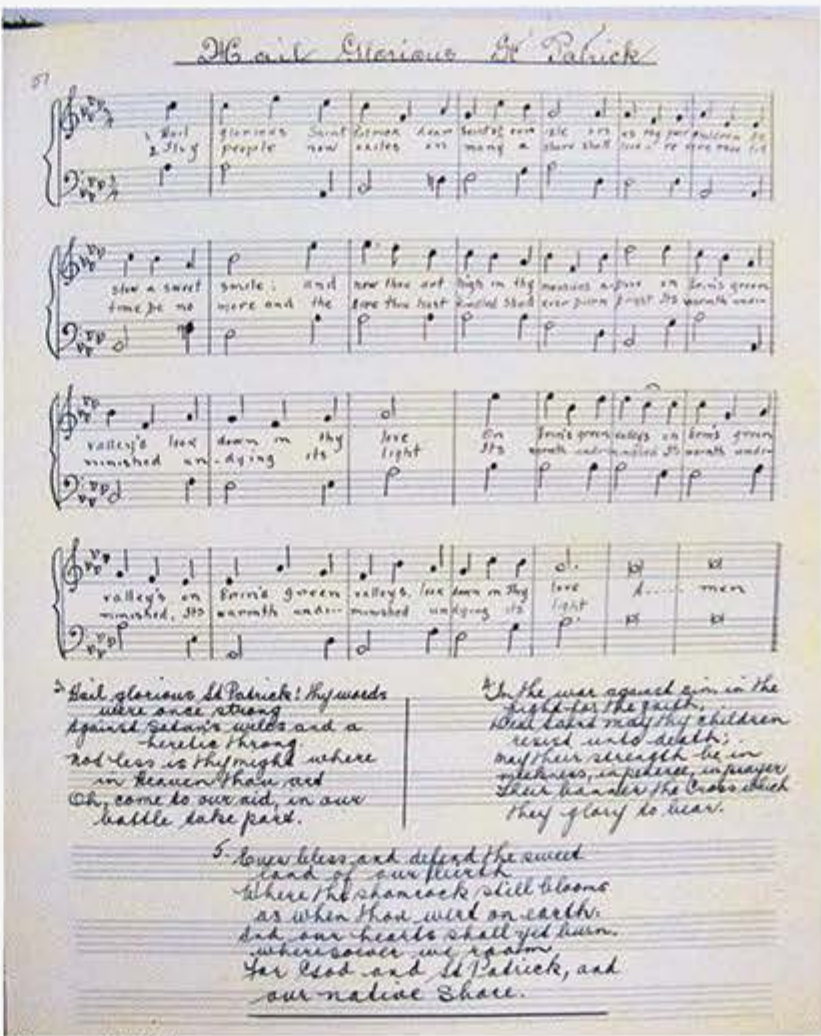 Hail Glorious St Patrick
57
1 Hail glorious Saint Patrick dear saint of our isle on us thy poor children be-
2 Thy people now exiles on many a shore shall love
stow a sweet smile; and now thou art high in thy mansions above on Erin's green
time be no more and the fire thou hast kindled shall ever burn bright Its warmth undi-
valley's look down in thy love On Erin's green valleys on Erin's green
minished un-dying its light Its warmth undi-minished Its warmth undi-
valley's on Erin's green valleys, look down in thy love A..... men
minished, Its warmth undi-- minished undying its light
3. Hail glorious St Patrick! thy words
were once strong
Against Satan's wiles and a
heretic throng
Not less is thy might where
in Heaven thou art
Oh, come to our aid, in our
battle take part.
4. In the war against sin in the
fight for the faith,
Dear Saint may thy children
resist unto death;
May their strength be in
meekness, in penance, in prayer
Their banner the Cross which
they glory to bear.
5- Ever bless and defend the sweet
land of our birth
Where the shamrock still blooms
as when thou wert on earth.
And our hearts shall yet burn,
wheresoever we roam
For God and St Patrick, and
our native Shore.